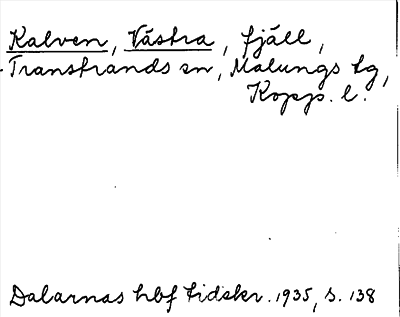 Kalven, Västra, fjäll,
Transtrands sn, Malungs tg,
Kopp. l.
Dalarnas hbf tidskr. 1935, s. 138